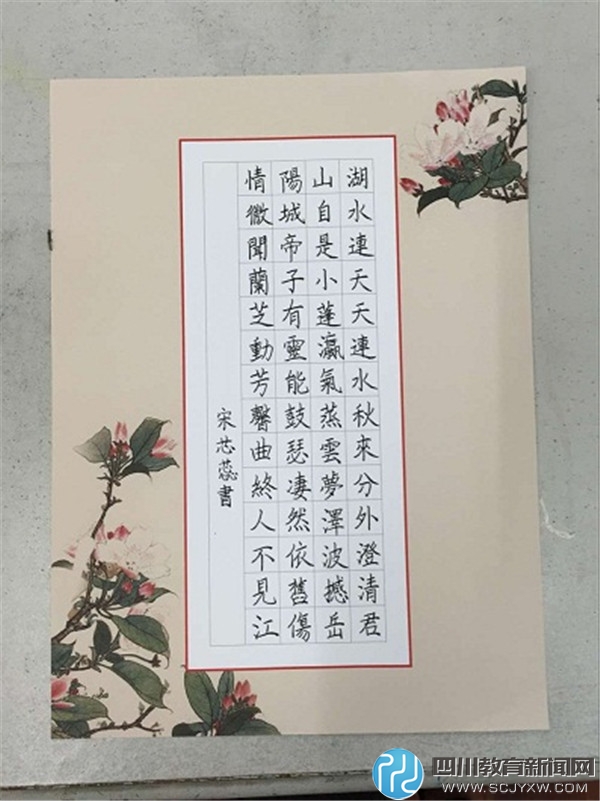 湖水連天天連水秋來分外澄清君
山自是小蓬瀛氣蒸雲夢澤波撼岳
陽城帝子有靈能鼓瑟淒然依舊傷
情微聞蘭芝動芳馨曲終人不見江
宋芯蕊書
四川教育新闻网
WWW.SCJYXW.COM